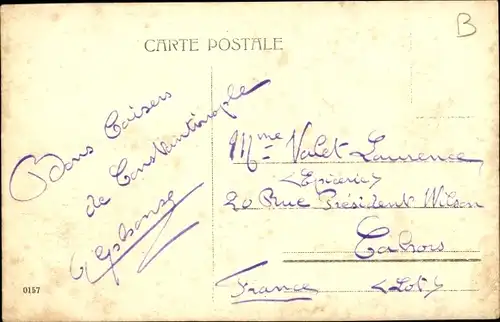 B
CARTE POSTALE
Bons Baisers
de Constantinople
Alphonse
Mme Valet Laurence
<Epicerie>
20 Rue Président Wilson
Cahors
France <Lot>
0157